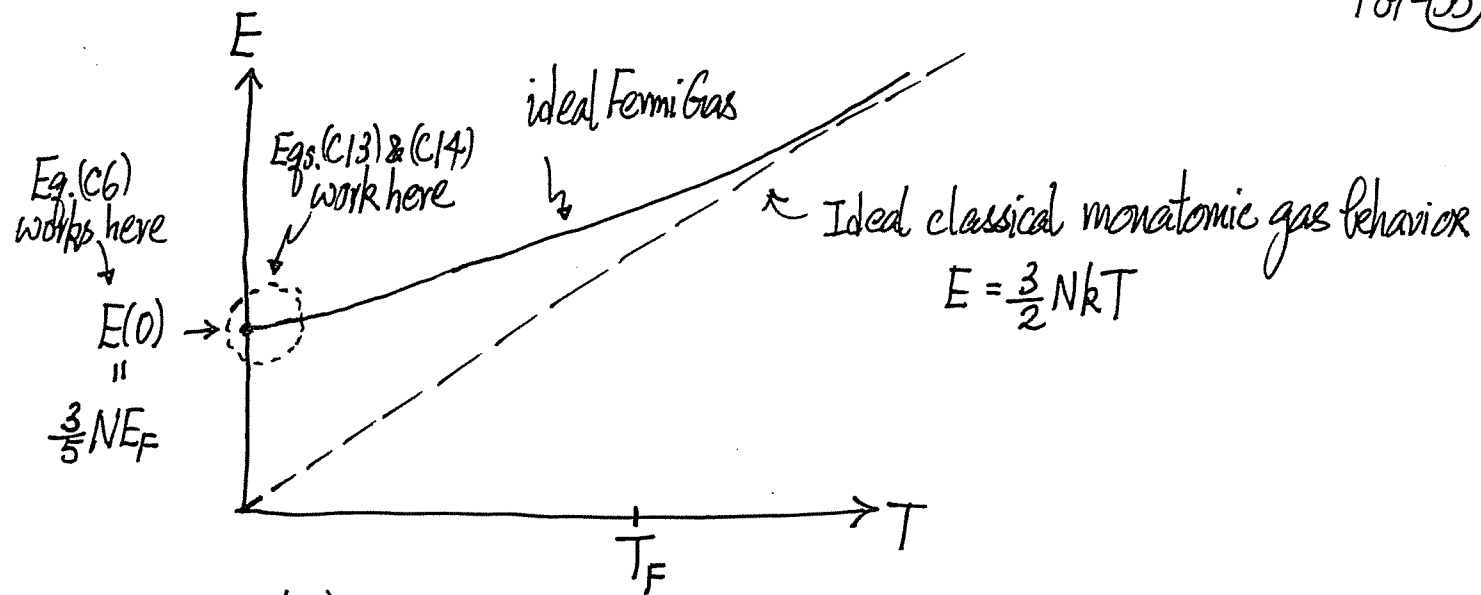 E
ideal Fermi Gas
Eqs.(C13) & (C14)
work here
Eq.(C6)
works here
Ideal classical monatomic gas behavior
E = 3/2 NkT
E(0)
=
3/5 NE_F
T
T_F